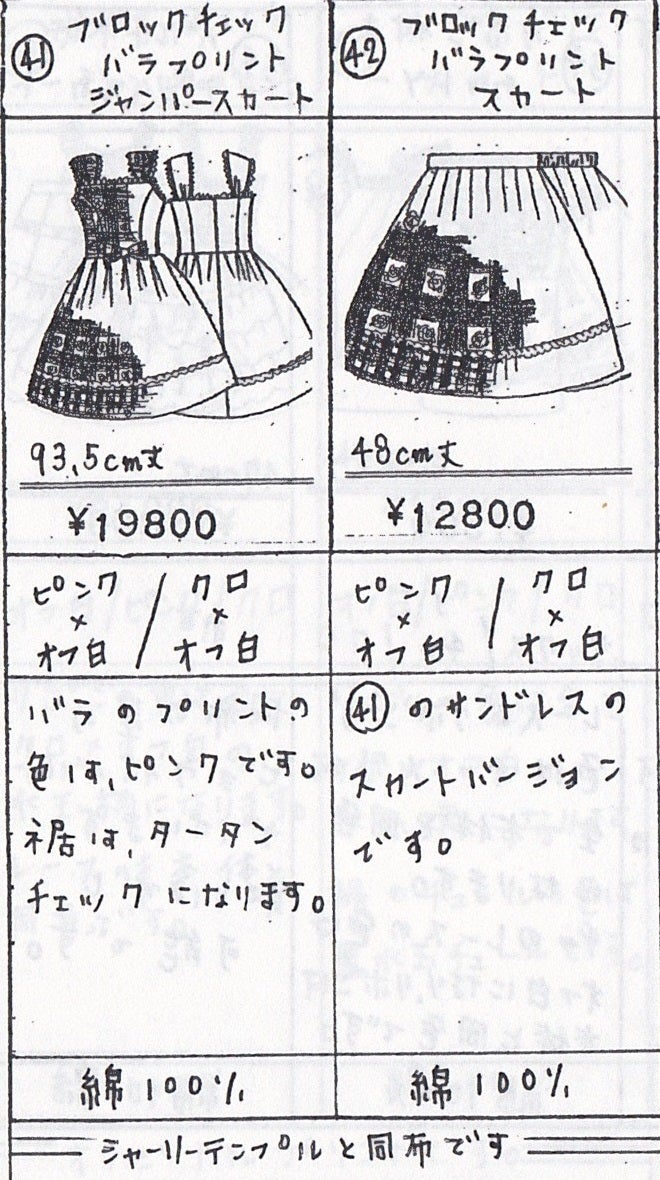 ㊶ ブロックチェック
バラプリント
ジャンパースカート
93.5cm丈
¥19800
ピンク×オフ白 / クロ×オフ白
バラのプリントの
色はピンクです。
裾は、タータン
チェックになります。
綿100%
㊷ ブロックチェック
バラプリント
スカート
48cm丈
¥12800
ピンク×オフ白 / クロ×オフ白
㊶のサンドレスの
スカートバージョン
です。
綿100%
シャーリーテンプルと同布です